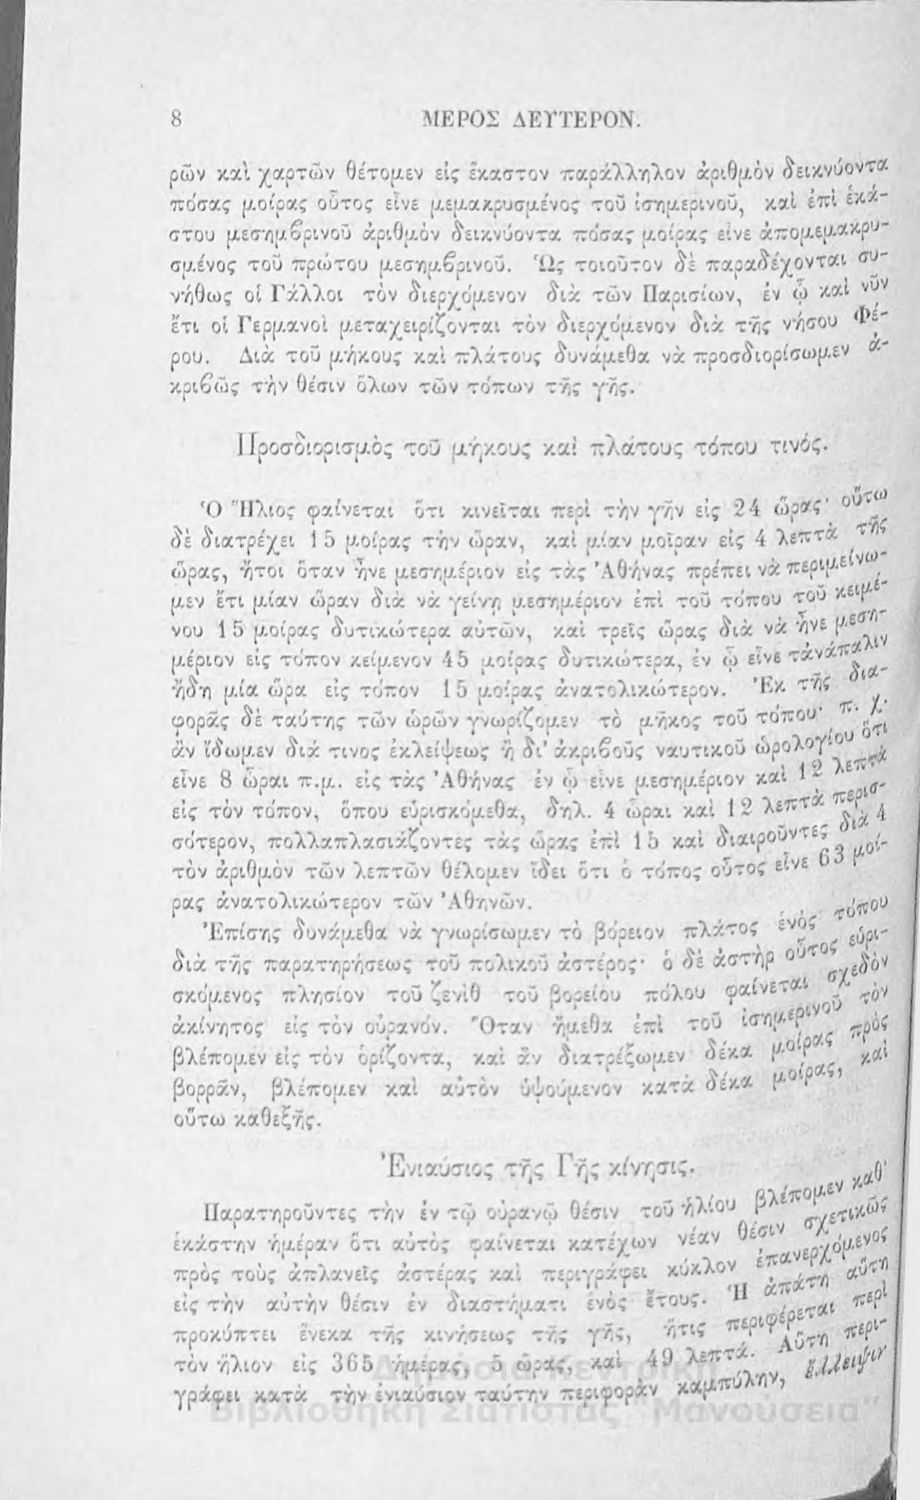 8 ΜΕΡΟΣ ΔΕΥΤΕΡΟΝ.
ρῶν καὶ χαρτῶν θέτομεν εἰς ἕκαστον παράλληλον ἀριθμὸν δεικνύοντα
πόσας μοίρας οὗτος εἶνε μεμακρυσμένος τοῦ ἰσημερινοῦ, καὶ ἐπὶ ἑκά-
στου μεσημβρινοῦ ἀριθμὸν δεικνύοντα πόσας μοίρας εἶνε ἀπομεμακρυ-
σμένος τοῦ πρώτου μεσημβρινοῦ. Ὡς τοιοῦτον δὲ παραδέχονται συ-
νήθως οἱ Γάλλοι τὸν διερχόμενον διὰ τῶν Παρισίων, ἐν ᾧ καὶ νῦν
ἔτι οἱ Γερμανοὶ μεταχειρίζονται τὸν διερχόμενον διὰ τῆς νήσου Φέ-
ρου. Διὰ τοῦ μήκους καὶ πλάτους δυνάμεθα νὰ προσδιορίσωμεν ἀ-
κριβῶς τὴν θέσιν ὅλων τῶν τόπων τῆς γῆς.
Προσδιορισμὸς τοῦ μήκους καὶ πλάτους τόπου τινός.
Ὁ Ἥλιος φαίνεται ὅτι κινεῖται περὶ τὴν γῆν εἰς 24 ὥρας· οὕτω
δὲ διατρέχει 15 μοίρας τὴν ὥραν, καὶ μίαν μοῖραν εἰς 4 λεπτὰ τῆς
ὥρας, ἤτοι ὅταν ἦνε μεσημέριον εἰς τὰς Ἀθήνας πρέπει νὰ περιμείνω-
μεν ἔτι μίαν ὥραν διὰ νὰ γείνῃ μεσημέριον ἐπὶ τοῦ τόπου τοῦ κειμέ-
νου 15 μοίρας δυτικώτερα αὐτῶν, καὶ τρεῖς ὥρας διὰ νὰ ἦνε μεση-
μέριον εἰς τόπον κείμενον 45 μοίρας δυτικώτερα, ἐν ᾧ εἶνε τἀνάπαλιν
ἤδη μία ὥρα εἰς τόπον 15 μοίρας ἀνατολικώτερον. Ἐκ τῆς δια-
φορᾶς δὲ ταύτης τῶν ὡρῶν γνωρίζομεν τὸ μῆκος τοῦ τόπου· π. χ.
ἂν ἴδωμεν διά τινος ἐκλείψεως ἢ δι' ἀκριβοῦς ναυτικοῦ ὡρολογίου ὅτι
εἶνε 8 ὧραι π.μ. εἰς τὰς Ἀθήνας ἐν ᾧ εἶνε μεσημέριον καὶ 12 λεπτὰ
εἰς τὸν τόπον, ὅπου εὑρισκόμεθα, δηλ. 4 ὧραι καὶ 12 λεπτὰ περισ-
σότερον, πολλαπλασιάζοντες τὰς ὥρας ἐπὶ 15 καὶ διαιροῦντες διὰ 4
τὸν ἀριθμὸν τῶν λεπτῶν θέλομεν ἴδει ὅτι ὁ τόπος οὗτος εἶνε 63 μοί-
ρας ἀνατολικώτερον τῶν Ἀθηνῶν.
Ἐπίσης δυνάμεθα νὰ γνωρίσωμεν τὸ βόρειον πλάτος ἑνὸς τόπου
διὰ τῆς παρατηρήσεως τοῦ πολικοῦ ἀστέρος· ὁ δὲ ἀστὴρ οὗτος εὑρι-
σκόμενος πλησίον τοῦ ζενὶθ τοῦ βορείου πόλου φαίνεται σχεδὸν
ἀκίνητος εἰς τὸν οὐρανόν. Ὅταν ἤμεθα ἐπὶ τοῦ ἰσημερινοῦ τὸν
βλέπομεν εἰς τὸν ὁρίζοντα, καὶ ἂν διατρέξωμεν δέκα μοίρας πρὸς
βορρᾶν, βλέπομεν καὶ αὐτὸν ὑψούμενον κατὰ δέκα μοίρας, καὶ
οὕτω καθεξῆς.
Ἐνιαύσιος τῆς Γῆς κίνησις.
Παρατηροῦντες τὴν ἐν τῷ οὐρανῷ θέσιν τοῦ ἡλίου βλέπομεν καθ'
ἑκάστην ἡμέραν ὅτι αὐτὸς φαίνεται κατέχων νέαν θέσιν σχετικῶς
πρὸς τοὺς ἀπλανεῖς ἀστέρας καὶ περιγράφει κύκλον ἐπανερχόμενος
εἰς τὴν αὐτὴν θέσιν ἐν διαστήματι ἑνὸς ἔτους. Ἡ ἀπάτη αὕτη
προκύπτει ἕνεκα τῆς κινήσεως τῆς γῆς, ἥτις περιφέρεται περὶ
τὸν ἥλιον εἰς 365 ἡμέρας, 5 ὥρας, καὶ 49 λεπτά. Αὕτη περι-
γράφει κατὰ τὴν ἐνιαύσιον ταύτην περιφορὰν καμπύλην, ἔλλειψιν
Δημόσια Κεντρική
Βιβλιοθήκη Σιάτιστας "Μανούσεια"